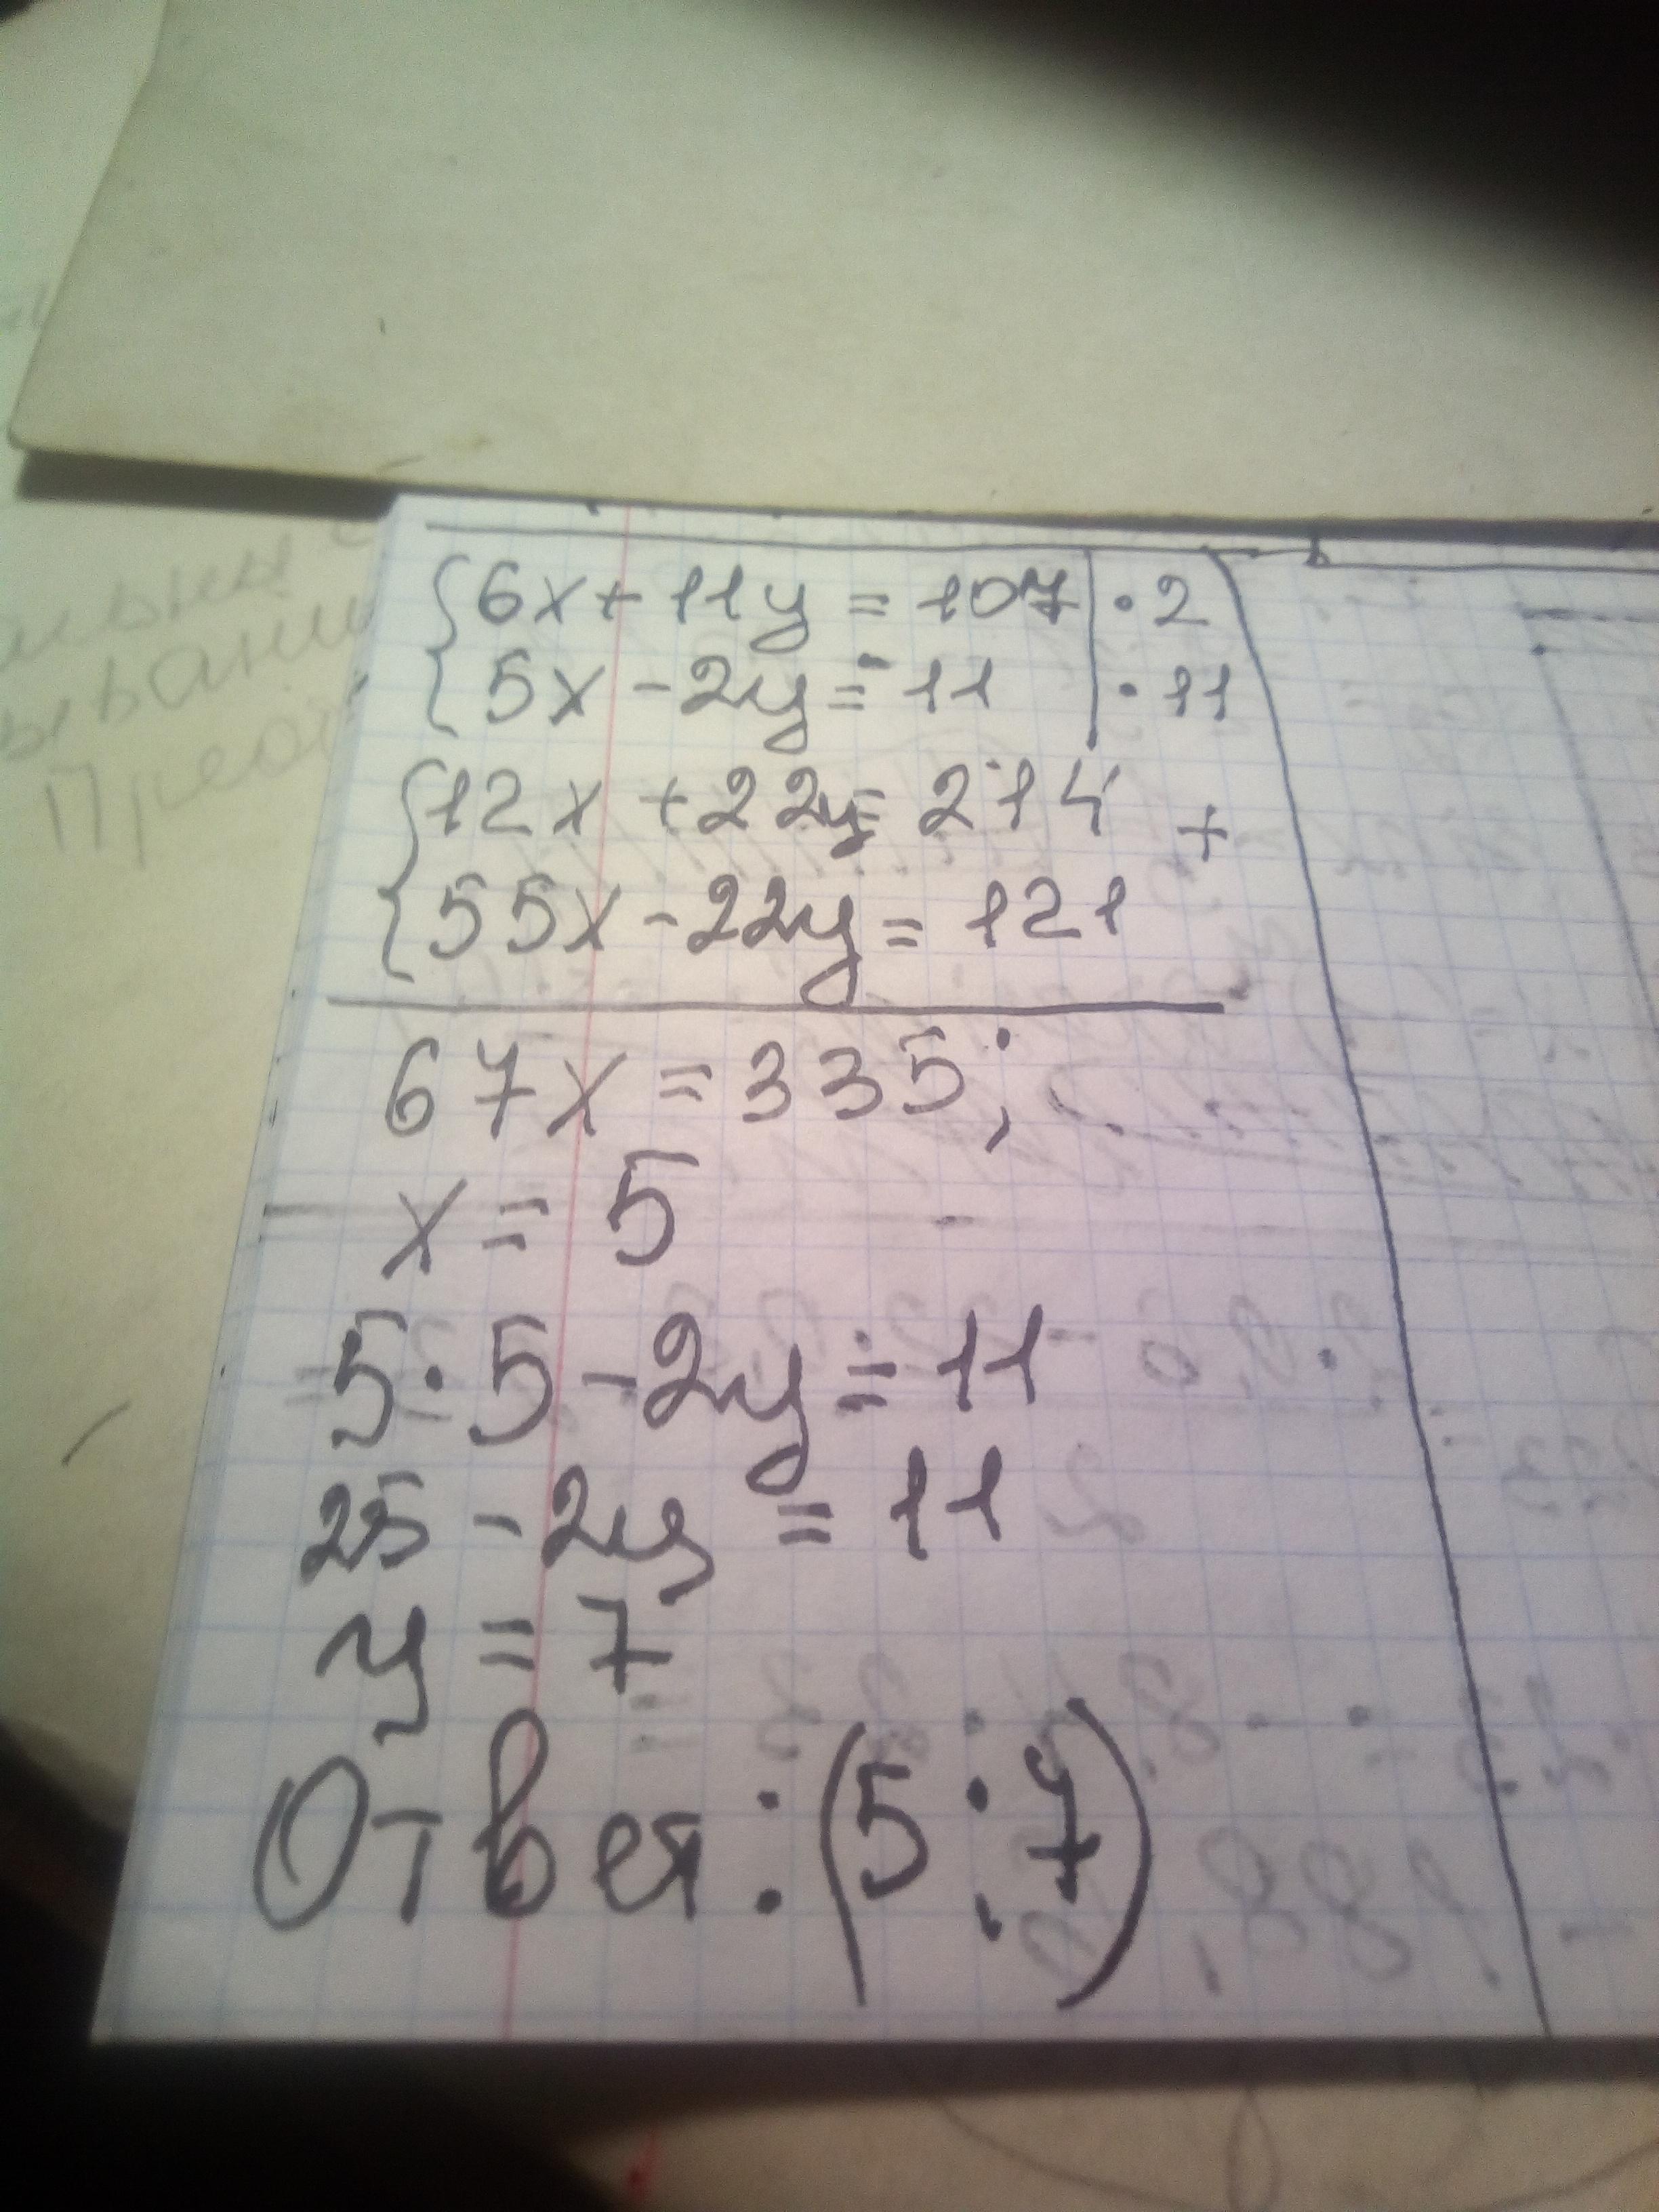 6x + 11y = 107 | · 2
5x - 2y = 11 | · 11
12x + 22y = 214 +
55x - 22y = 121
67x = 335;
x = 5
5 · 5 - 2y = 11
25 - 2y = 11
y = 7
Ответ: (5; 7)